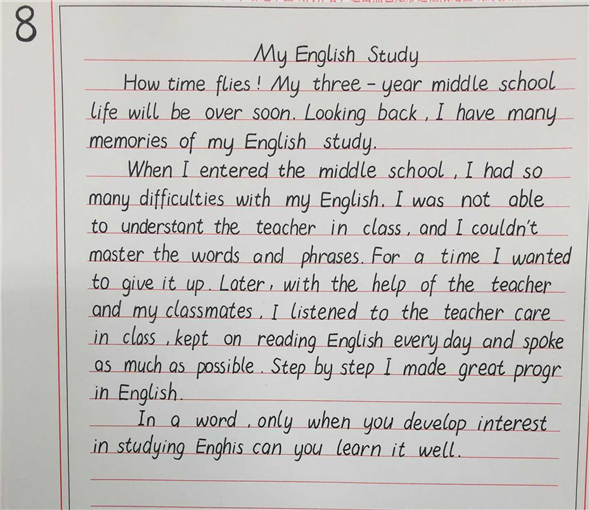 8
My English Study
How time flies! My three-year middle school
life will be over soon. Looking back, I have many
memories of my English study.
When I entered the middle school, I had so
many difficulties with my English. I was not able
to understant the teacher in class, and I couldn't
master the words and phrases. For a time I wanted
to give it up. Later, with the help of the teacher
and my classmates, I listened to the teacher care
in class, kept on reading English every day and spoke
as much as possible. Step by step I made great progr
in English.
In a word, only when you develop interest
in studying Enghis can you learn it well.